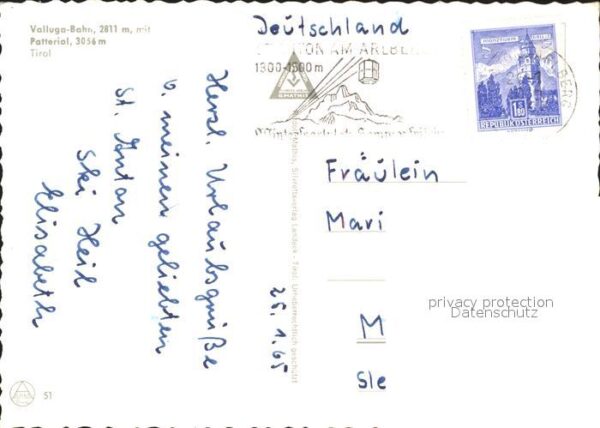 Valluga-Bahn, 2811 m, mit
Patteriol, 3056 m
Tirol
Deutschland
ST. ANTON AM ARLBERG
1300-1500 m
REPUBLIK ÖSTERREICH
Herzl. Urlaubsgrüße
v. meinem geliebten
St. Anton
Ski Heil
Elisabeth
25.1.65
Fräulein
Mari
M
Sle
privacy protection
Datenschutz
51